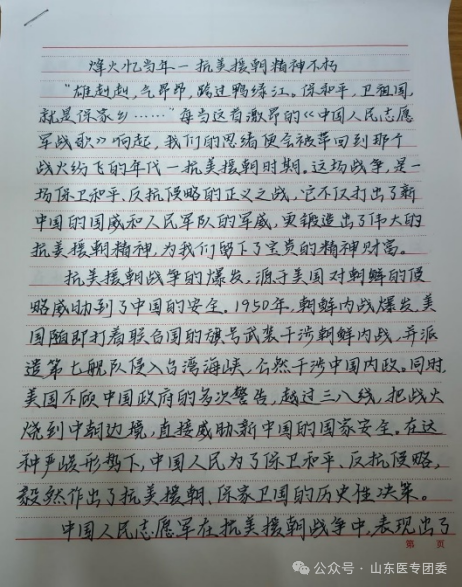 烽火忆当年一抗美援朝精神不朽
“雄赳赳，气昂昂，跨过鸭绿江。保和平，卫祖国，
就是保家乡……”每当这首激昂的《中国人民志愿
军战歌》响起，我们的思绪便会被牵回到那个
战火纷飞的年代一抗美援朝时期。这场战争，是一
场保卫和平、反抗侵略的正义之战，它不仅打出了新
中国的国威和人民军队的军威，更锻造出了伟大的
抗美援朝精神，为我们留下了宝贵的精神财富。
抗美援朝战争的爆发，源于美国对朝鲜的侵
略威胁到了中国的安全。1950年，朝鲜内战爆发，美
国随即打着联合国的旗号武装干涉朝鲜内战，并派
造第七舰队侵入台湾海峡，公然干涉中国内政。同时，
美国不顾中国政府的多次警告，越过三八线，把战火
烧到中朝边境，直接威胁新中国的国家安全。在这
种严峻形势下，中国人民为了保卫和平、反抗侵略，
毅然作出了抗美援朝、保家卫国的历史性决策。
中国人民志愿军在抗美援朝战争中，表现出了
第 页
公众号·山东医专团委